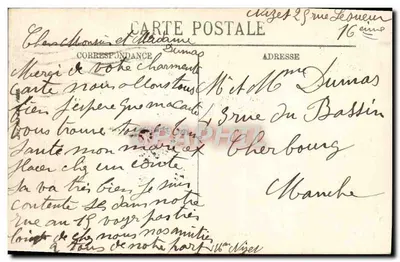 Nizet 25 rue Lesueur
16 eme
CARTE POSTALE
Chers Monsieur et Madame
Dumas
CORRESPONDANCE
ADRESSE
Merci de votre charmante
carte nous allons tous
bien j'espere que ma carte
vous trouve tous en bonne
sante mon mari est
placer chez un comte
sa va tres bien je suis
contente dans notre
rue au 15 pas tres
loin de chez nous nos amitiés
a tous de notre part Mme Nizet
M et Mme Dumas
13 rue du Bassin
Cherbourg
Manche